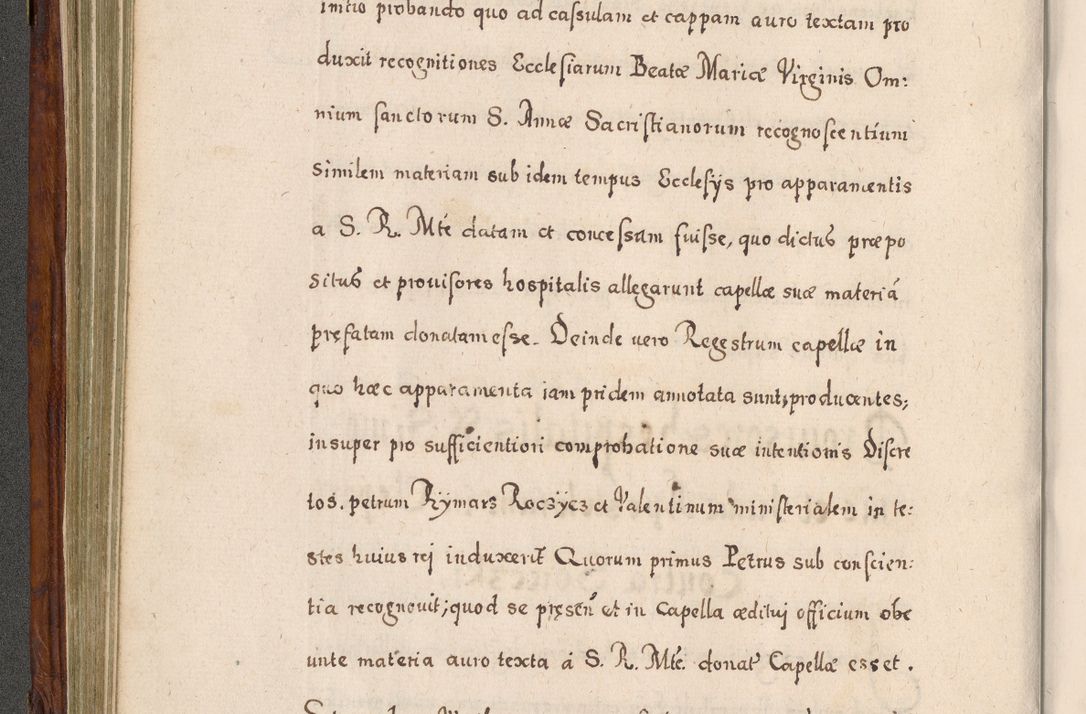 imtio probando quo ad casulam et cappam auro textam pro
duxit recognitiones Ecclesiarum Beatæ Mariæ Virginis Om:
nium sanctorum S. Annæ Sacristianorum recognoscentium
similem materiam sub idem tempus Ecclesijs pro apparamentis
a S. R. Mté datam et concessam fuisse, quo dictus præpo
situs et prouisores hospitalis allegarunt capellæ suæ materiā
pręfatam donatam esse. Deinde uero Regestrum capellæ in
quo hæc apparamenta iam pridem annotata sunt, producentes,
insuper pro sufficientiori comprobatione suæ intentionis Discre
tos. petrum Rymars Roczycz et Valentinum ministerialem in te:
stes huius rej induxerūt Quorum primus Petrus sub conscien:
tia recognouit; quod se pręsen̄ et in Capella æditui officium obe
unte materia auro texta á S. R. Mté. donat Capellæ esset.